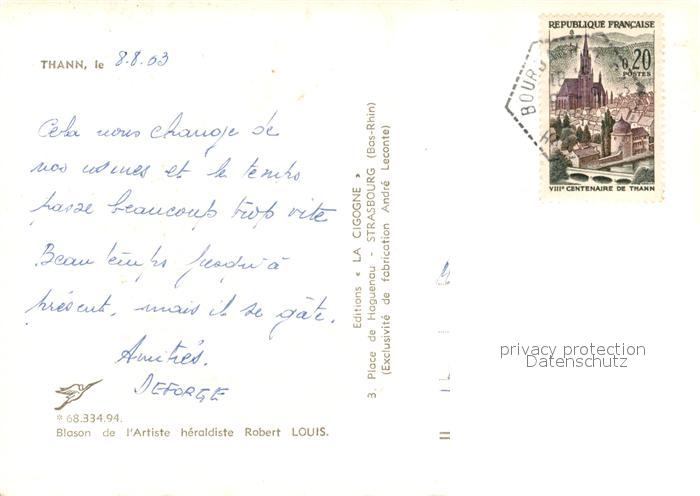 THANN, le 8.8.63
Cela nous change de
nos usines et le temps
passe beaucoup trop vite
Beau temps jusqu'à
présent, mais il se gâte.
Amitiés.
DEFORGE
* 68.334.94.
Blason de l'Artiste héraldiste Robert LOUIS.
Editions « LA CIGOGNE »
3, Place de Haguenau - STRASBOURG (Bas-Rhin)
(Exclusivité de fabrication André Leconte)
REPUBLIQUE FRANÇAISE
0,20
POSTES
VIIIe CENTENAIRE DE THANN
BOURB
privacy protection
Datenschutz